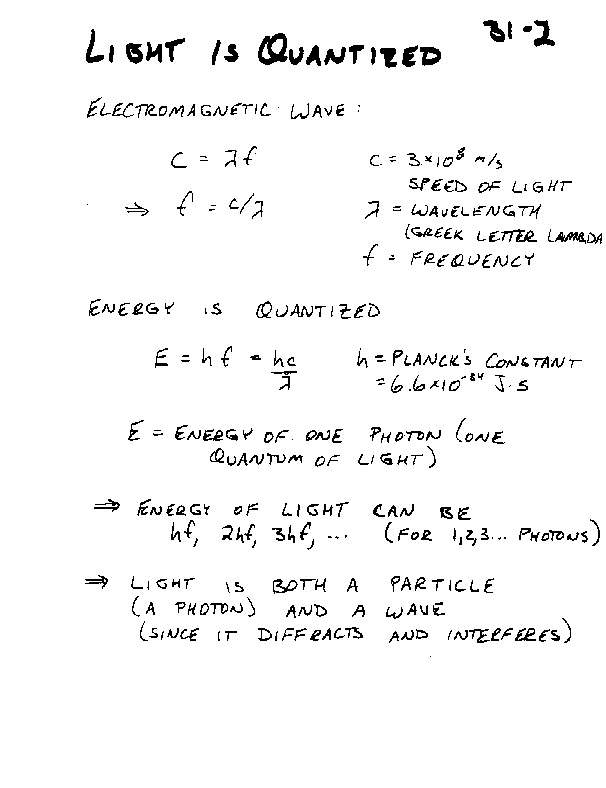 31-2
LIGHT IS QUANTIZED
ELECTROMAGNETIC WAVE:
c = λf
c = 3×10⁸ m/s
SPEED OF LIGHT
⇒ f = c/λ
λ = WAVELENGTH
(GREEK LETTER LAMBDA
f = FREQUENCY
ENERGY IS QUANTIZED
E = hf = hc/λ
h = PLANCK'S CONSTANT
= 6.6×10⁻³⁴ J·s
E = ENERGY OF ONE PHOTON (ONE
QUANTUM OF LIGHT)
⇒ ENERGY OF LIGHT CAN BE
hf, 2hf, 3hf, ... (FOR 1,2,3... PHOTONS)
⇒ LIGHT IS BOTH A PARTICLE
(A PHOTON) AND A WAVE
(SINCE IT DIFFRACTS AND INTERFERES)